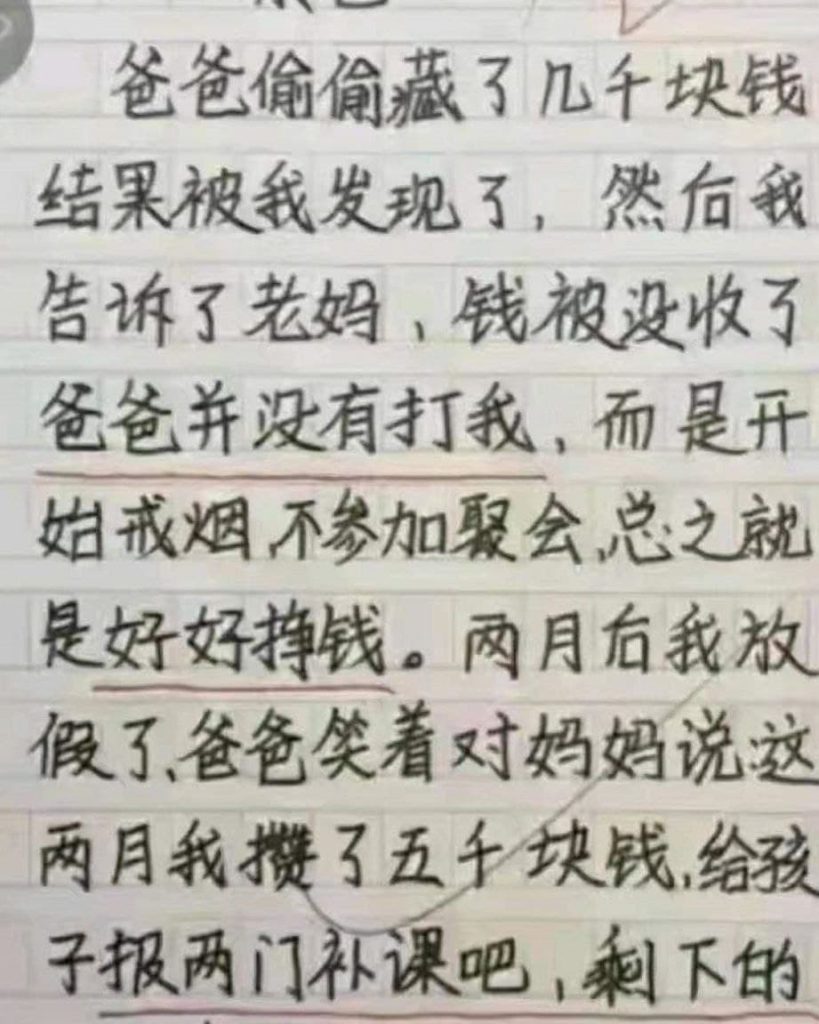 爸爸偷偷藏了几千块钱
结果被我发现了，然后我
告诉了老妈，钱被没收了
爸爸并没有打我，而是开
始戒烟，不参加聚会，总之就
是好好挣钱。两月后我放
假了，爸爸笑着对妈妈说：这
两月我攒了五千块钱，给孩
子报两门补课吧，剩下的